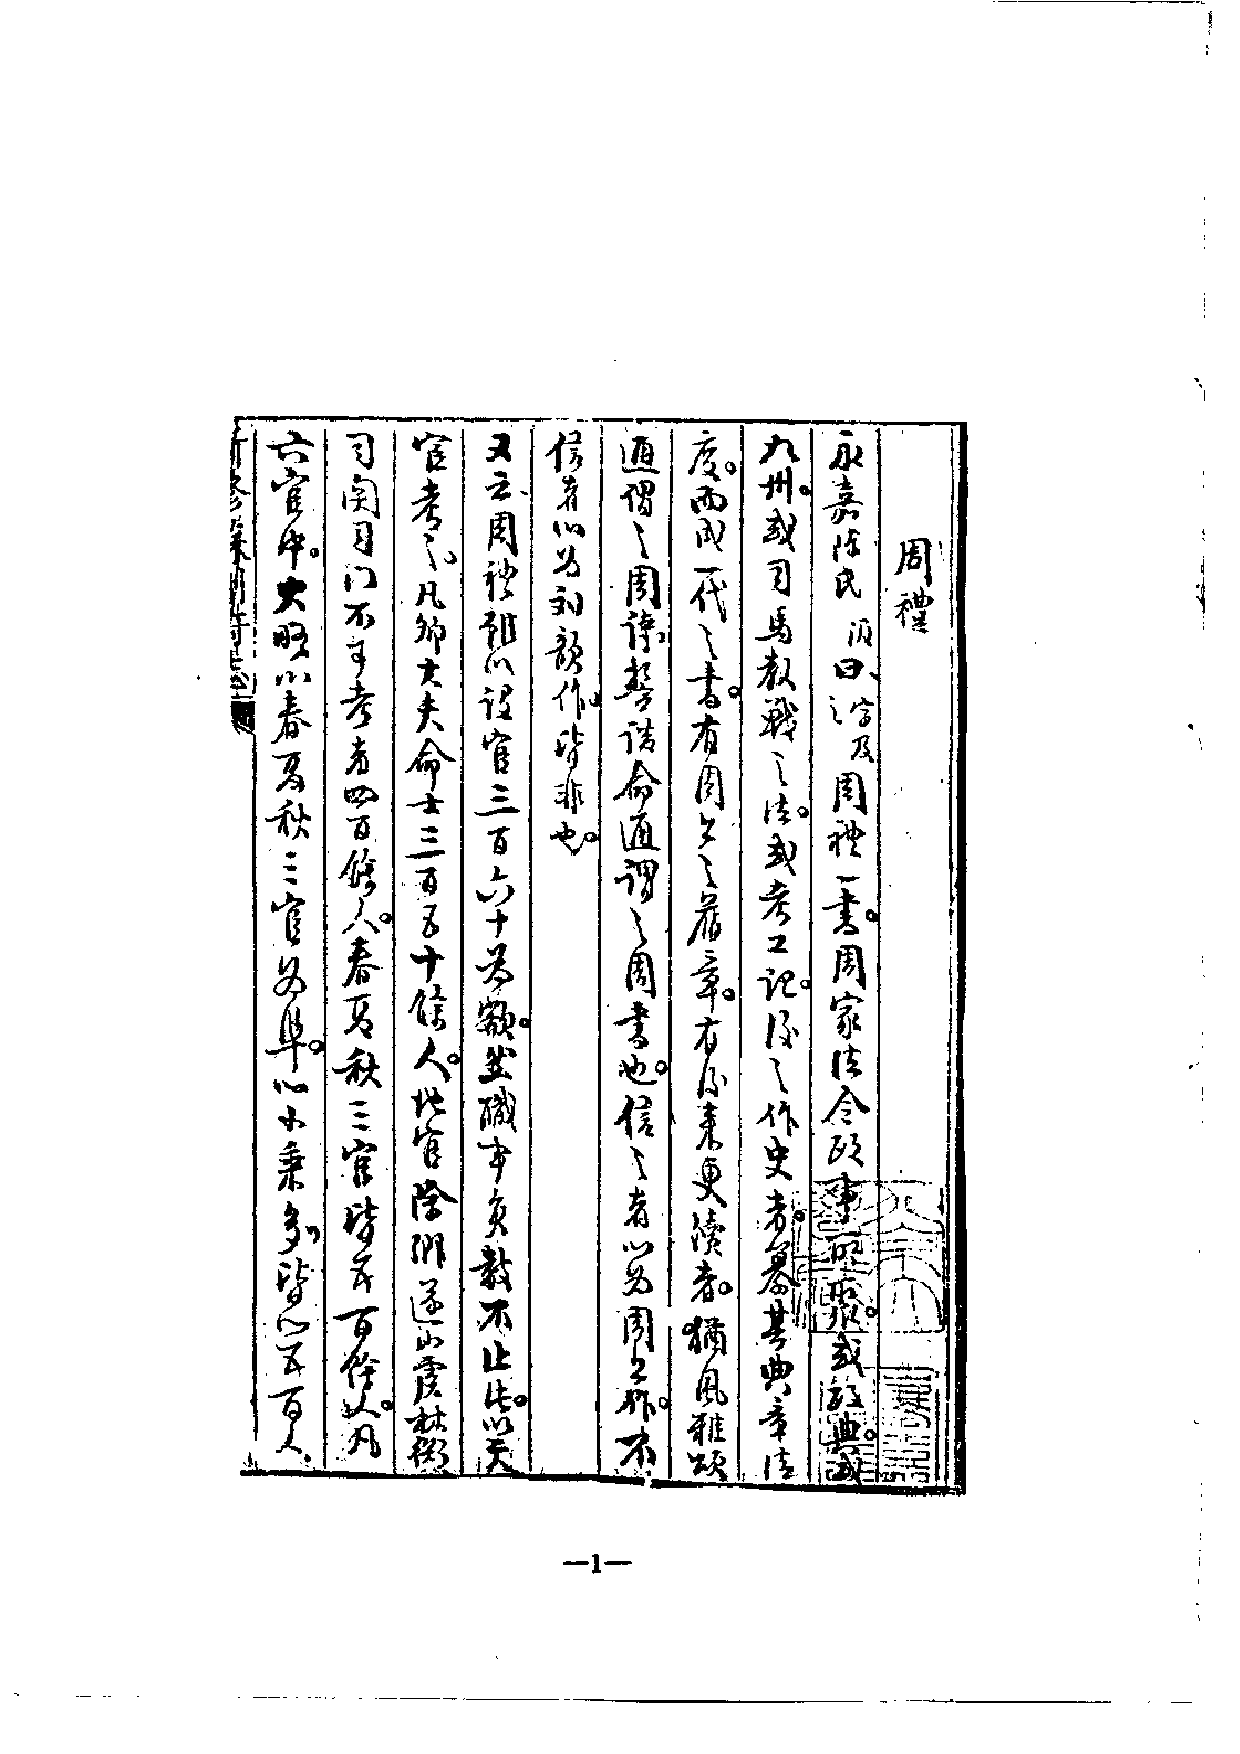 周禮
永嘉陳氏汲曰、嘗及周禮一書。周家法令政事所聚。或政典。或
九州。或司馬教戰之法。或考工記後之作史者。纂其典章法
度。而成一代之書。有周公之舊章。有後來更續者。猶風雅頌
通謂之周詩。誓誥命通謂之周書也。信之者以為周公作。不
信者以為劉歆作。皆非也。
又云、周禮雖以設官三百六十為額。並職中員數不止此。以天
官考之。凡卿大夫命士三百五十餘人。地官除鄉遂山虞林衡
司関司門不可考者四百餘人。春夏秋三官皆五百餘人。凡
六官中。大略以春夏秋三官為準。以少乘多。皆以五百人。
—1—